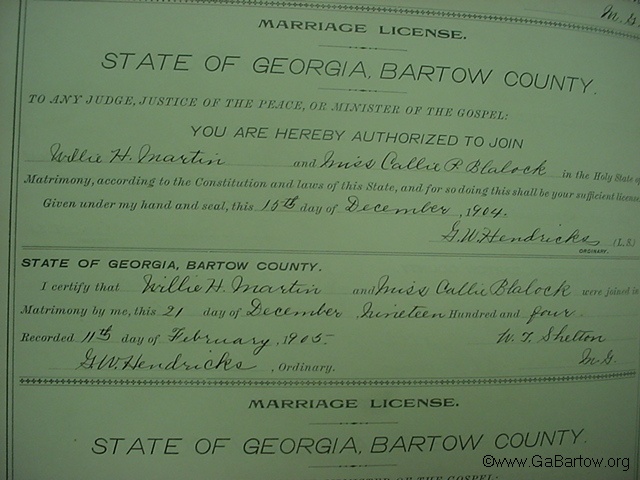 M. G.
MARRIAGE LICENSE.
STATE OF GEORGIA, BARTOW COUNTY.
TO ANY JUDGE, JUSTICE OF THE PEACE, OR MINISTER OF THE GOSPEL:
YOU ARE HEREBY AUTHORIZED TO JOIN
Willie H. Martin and Miss Callie P. Blalock in the Holy State of
Matrimony, according to the Constitution and laws of this State, and for so doing this shall be your sufficient license
Given under my hand and seal, this 15th day of December, 1904.
G. W. Hendricks (L. S.)
ORDINARY.
STATE OF GEORGIA, BARTOW COUNTY.
I certify that Willie H. Martin and Miss Callie Blalock were joined in
Matrimony by me, this 21 day of December Nineteen Hundred and four.
Recorded 11th day of February, 1905. W. T. Shelton
G. W. Hendricks, Ordinary. M. G.
MARRIAGE LICENSE.
STATE OF GEORGIA, BARTOW COUNTY.
©www.GaBartow.org